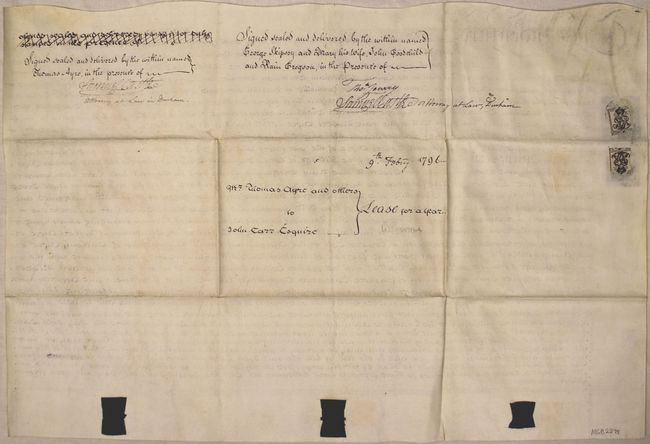 Signed sealed and delivered by the within named
Thomas Ayre, in the presence of
Attorney at Law in Durham.
Signed sealed and delivered by the within named
George Skipsey and Mary his Wife, John Goodchild
and Rain Grogson, in the Presence of
Attorney at Law, Durham
9th. Febry 1796
Mr. Thomas Ayre and others
to
John Carr Esquire
Lease for a Year.